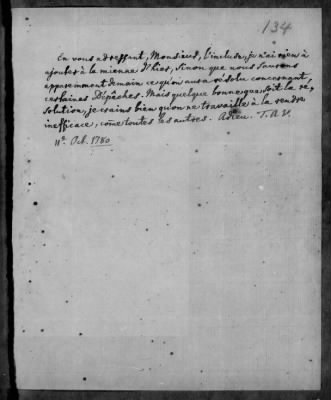 134
En vous adressant, Monsieur, l'incluse, je n'ai rien à
ajouter à la mienne d'hier, sinon que nous saurons
apparemment demain ce qu'on aura résolu concernant
certaines Dépêches. Mais quelque bonne que soit la ré-
solution, je crains bien qu'on ne travaille à la rendre
inefficace, come toutes les autres. Adieu. T. à V.
11e. Oct. 1780